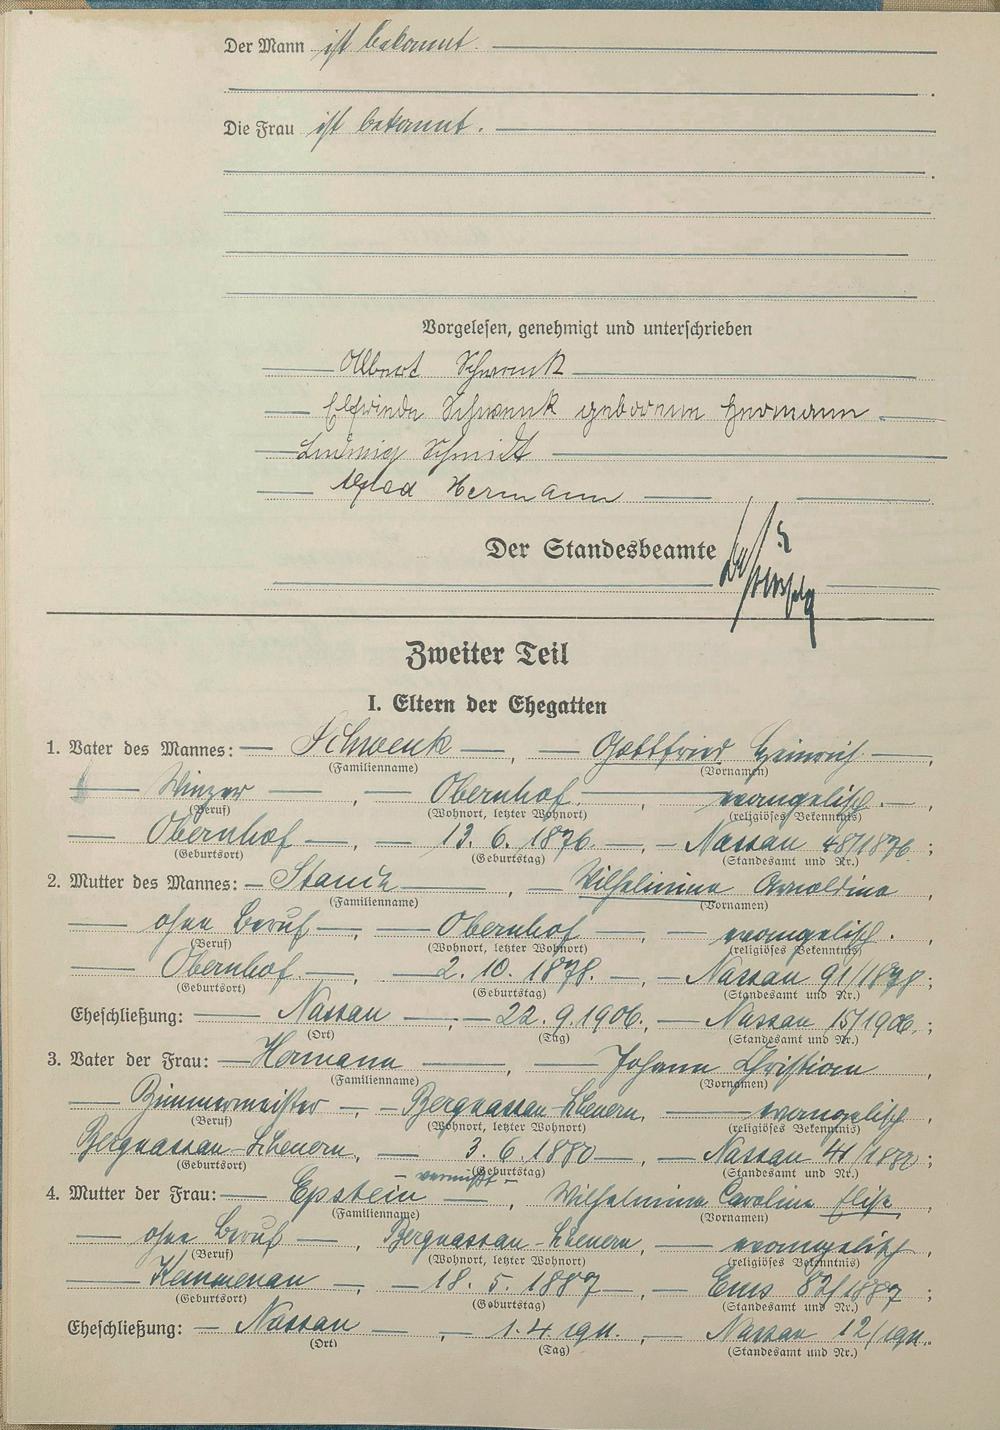 Der Mann ist bekannt.
Die Frau ist bekannt.
Vorgelesen, genehmigt und unterschrieben
Albert Schwenk
Elfriede Schwenk geborene Hermann
Ludwig Schmidt
Alfred Hermann
Der Standesbeamte
Zweiter Teil
I. Eltern der Ehegatten
1. Vater des Mannes: Schwenk, Gottfried Heinrich,
(Familienname) (Vornamen)
Winzer, Obernhof, evangelisch,
(Beruf) (Wohnort, letzter Wohnort) (religiöses Bekenntnis)
Obernhof, 13. 6. 1876, Nassau 48/1876;
(Geburtsort) (Geburtstag) (Standesamt und Nr.)
2. Mutter des Mannes: Wilhelmine Arnoldine,
(Familienname) (Vornamen)
ohne Beruf, Obernhof, evangelisch.,
(Beruf) (Wohnort, letzter Wohnort) (religiöses Bekenntnis)
Obernhof, 2. 10. 1878., Nassau 91/1878;
(Geburtsort) (Geburtstag) (Standesamt und Nr.)
Eheschließung: Nassau, 22. 9. 1906., Nassau 15/1906.;
(Ort) (Tag) (Standesamt und Nr.)
3. Vater der Frau: Hermann, Johann Christian,
(Familienname) (Vornamen)
Zimmermeister, Bergnassau-Scheuern, evangelisch,
(Beruf) (Wohnort, letzter Wohnort) (religiöses Bekenntnis)
Bergnassau-Scheuern, 3. 6. 1880, Nassau 41/1880;
(Geburtsort) (Geburtstag) (Standesamt und Nr.)
- vermißt -
4. Mutter der Frau: Epstein, Wilhelmine Caroline Elise,
(Familienname) (Vornamen)
ohne Beruf, Bergnassau-Scheuern, evangelisch,
(Beruf) (Wohnort, letzter Wohnort) (religiöses Bekenntnis)
Kemmenau, 18. 5. 1887, Ems 82/1887;
(Geburtsort) (Geburtstag) (Standesamt und Nr.)
Eheschließung: Nassau, 1. 4. 1911., Nassau 12/1911.
(Ort) (Tag) (Standesamt und Nr.)